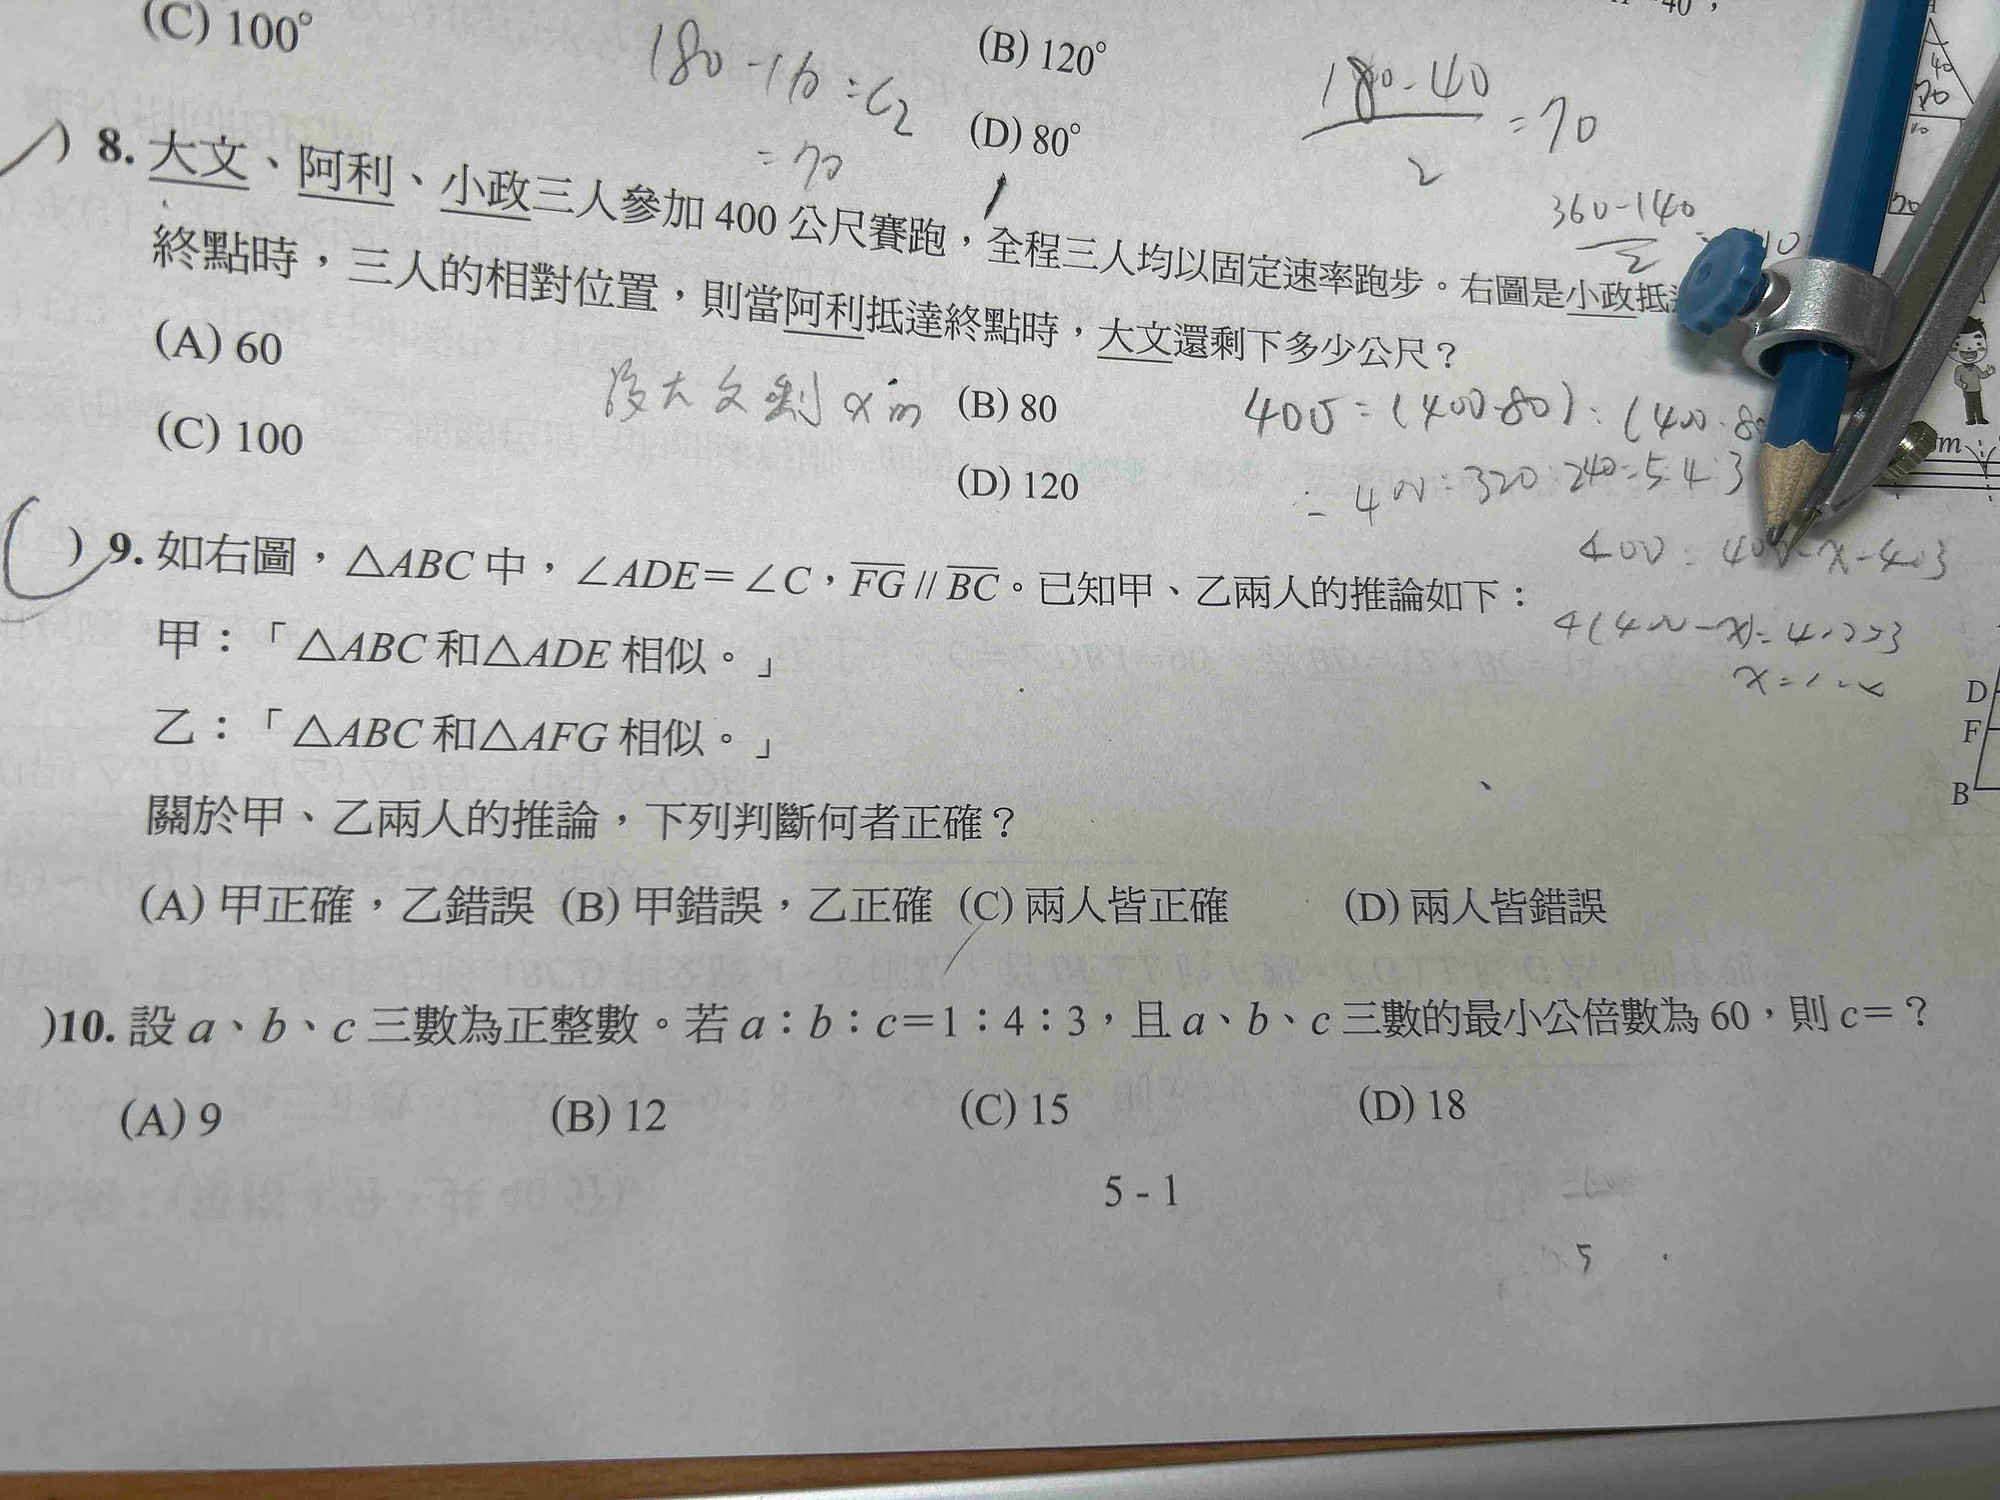 (C) 100°
(B) 120°
(D) 80°
180-40
2
=70
=70
360-140
2
8. 大文、阿利、小政三人參加 400 公尺賽跑，全程三人均以固定速率跑步。右圖是小政抵
終點時，三人的相對位置，則當阿利抵達終點時，大文還剩下多少公尺？
(A) 60
(B) 80
(C) 100
(D) 120
大文剩 x m
= 400 : 320 : 240 = 5:4:3
m
9. 如右圖，△ABC 中，∠ADE＝∠C，FG // BC。已知甲、乙兩人的推論如下：
甲：「△ABC 和△ADE 相似。」
乙：「△ABC 和△AFG 相似。」
關於甲、乙兩人的推論，下列判斷何者正確？
(A) 甲正確，乙錯誤 (B) 甲錯誤，乙正確 (C) 兩人皆正確 (D) 兩人皆錯誤
D
F
B
)10. 設 a、b、c 三數為正整數。若 a：b：c＝1：4：3，且 a、b、c 三數的最小公倍數為 60，則 c＝？
(A) 9 (B) 12 (C) 15 (D) 18
5 - 1
5